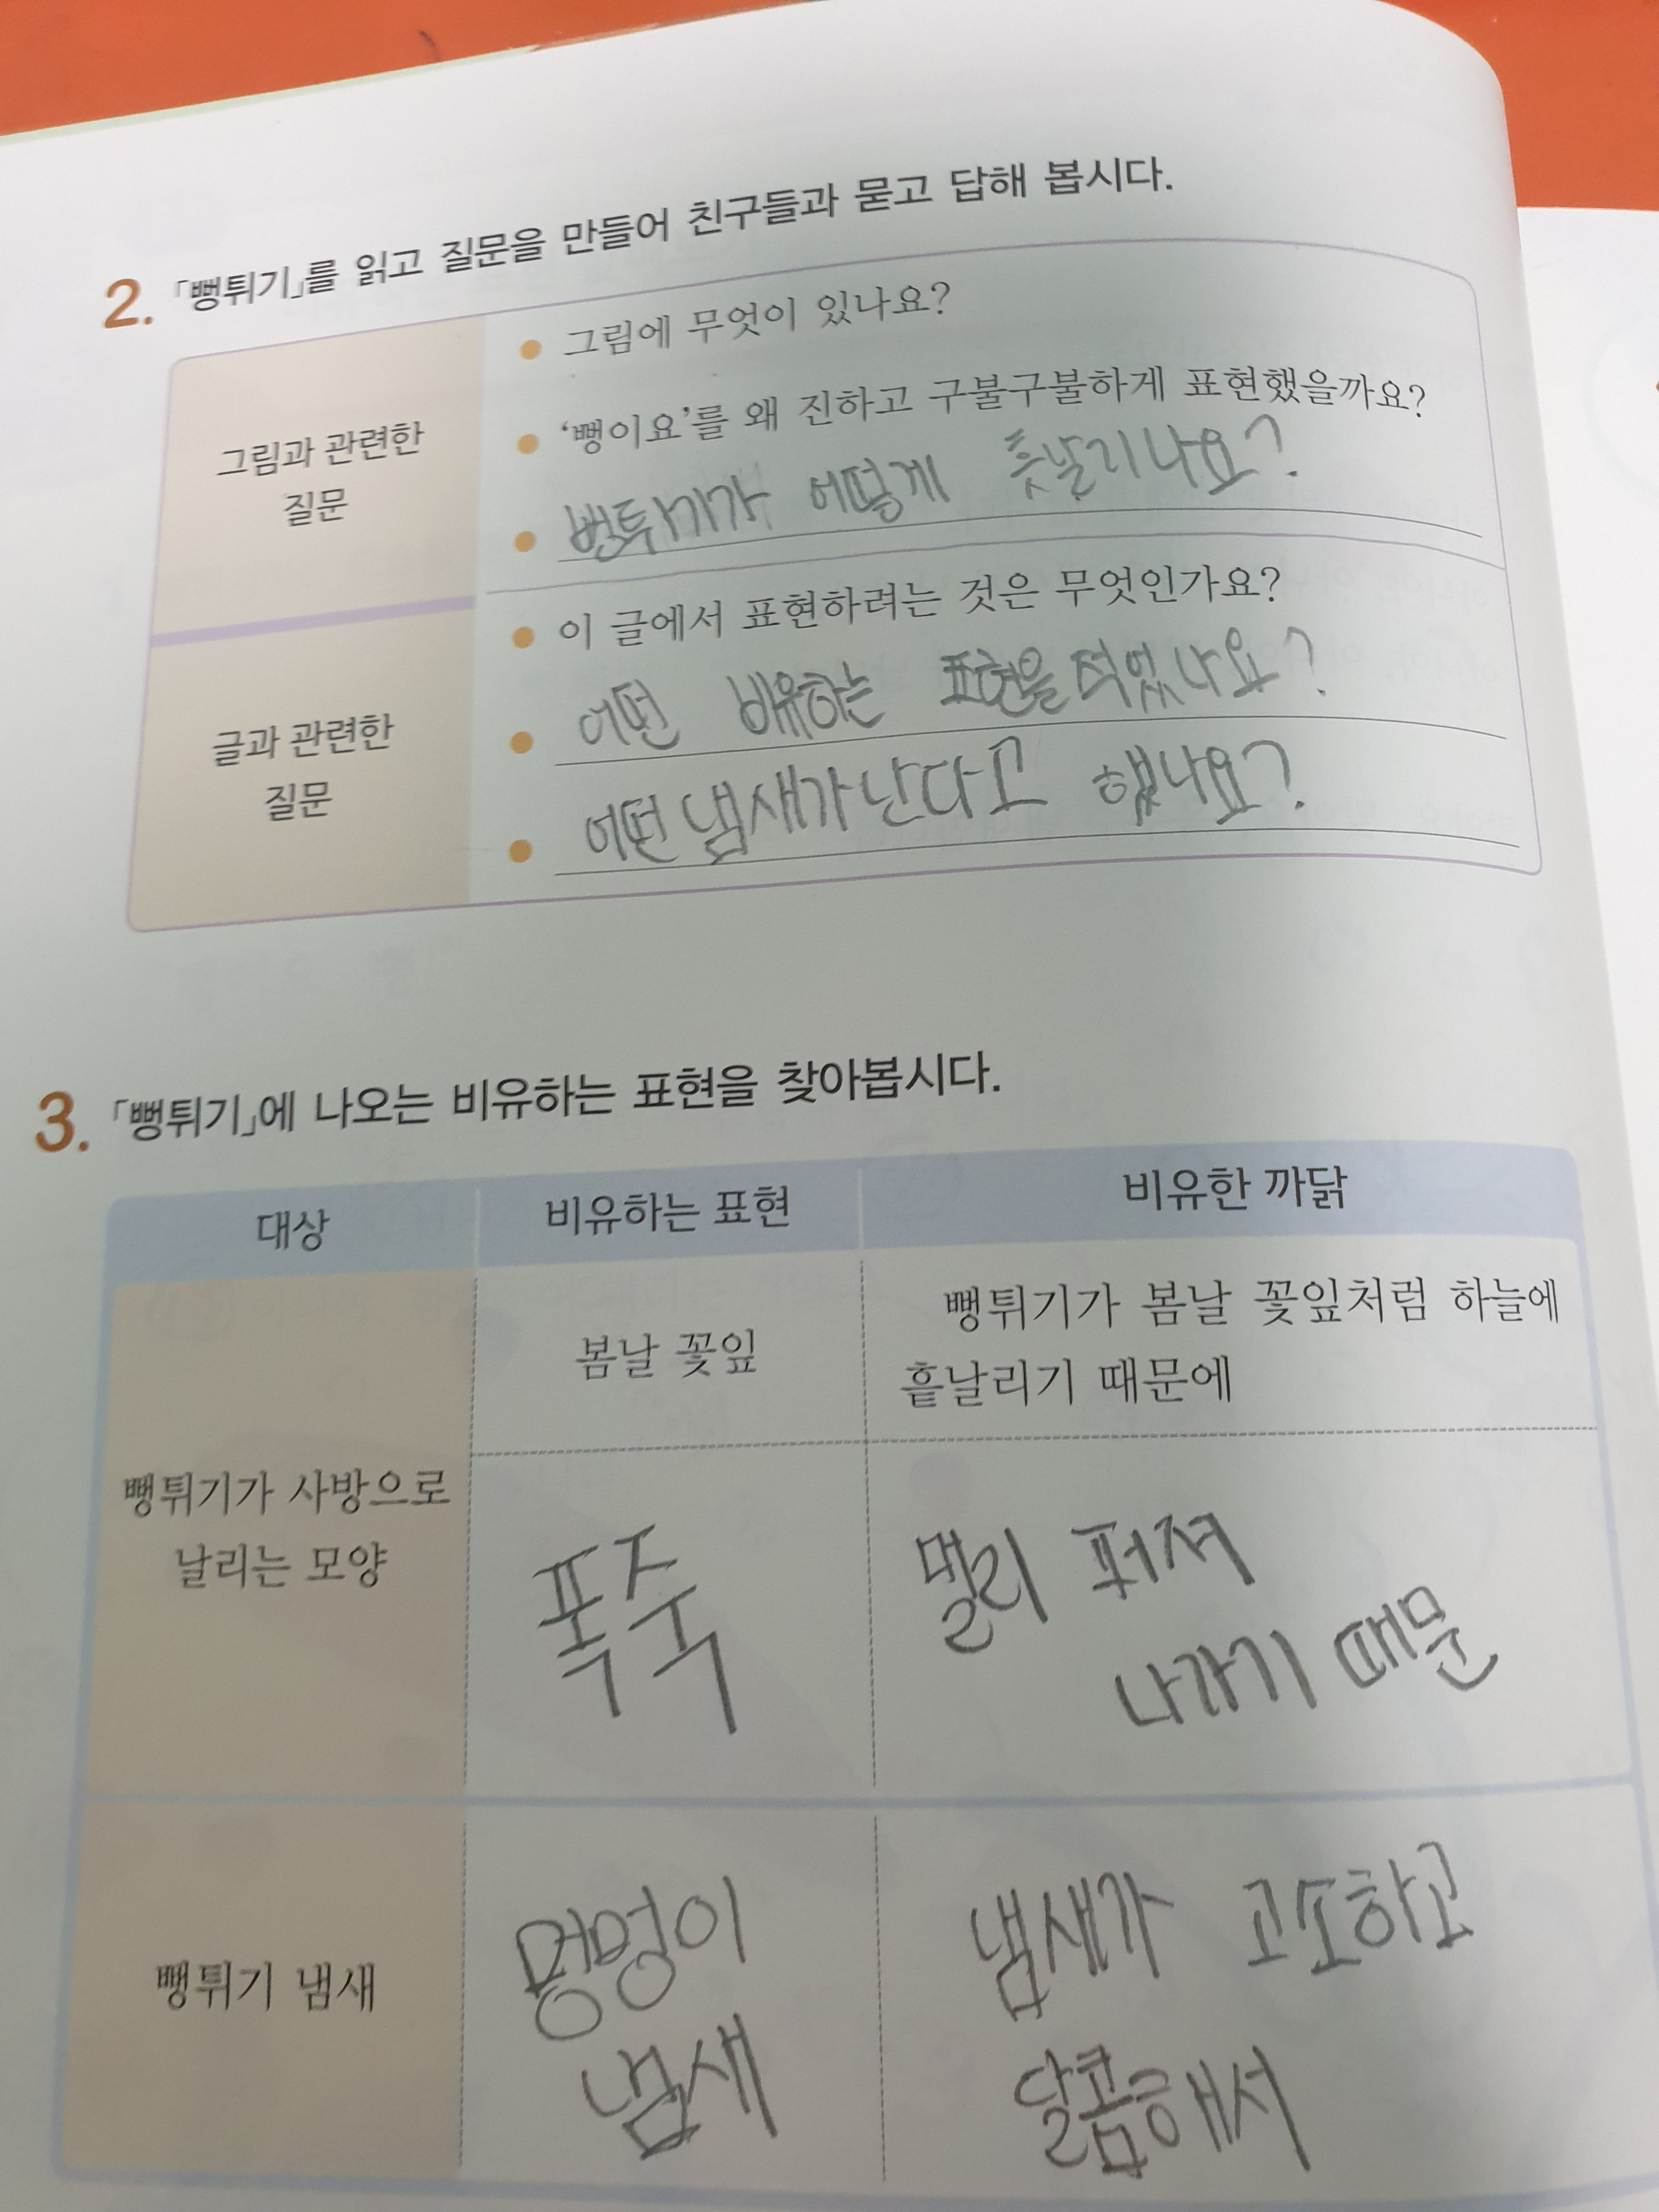 2. 「뻥튀기」를 읽고 질문을 만들어 친구들과 묻고 답해 봅시다.
그림과 관련한
질문
● 그림에 무엇이 있나요?
● ‘뻥이요’를 왜 진하고 구불구불하게 표현했을까요?
● 번튀기가 어떻게 흣날리나요?
글과 관련한
질문
● 이 글에서 표현하려는 것은 무엇인가요?
● 어떤 비유하는 표현을 적었나요?
● 어떤 냄새가 난다고 했나요?
3. 「뻥튀기」에 나오는 비유하는 표현을 찾아봅시다.
대상 비유하는 표현 비유한 까닭
뻥튀기가 사방으로
날리는 모양
봄날 꽃잎
뻥튀기가 봄날 꽃잎처럼 하늘에
흩날리기 때문에
폭죽
멀리 퍼져
나가기 때문
뻥튀기 냄새
멍멍이
냄새
냄새가 고소하고
달콤해서